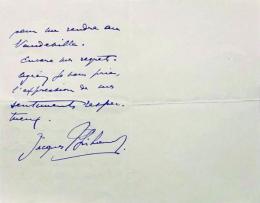 pour me rendre au
Vaudeville.
Encore mes regrets.
Agréez je vous prie,
l'expression de mes
sentiments respec-
tueux.
Jacques Thibaud.